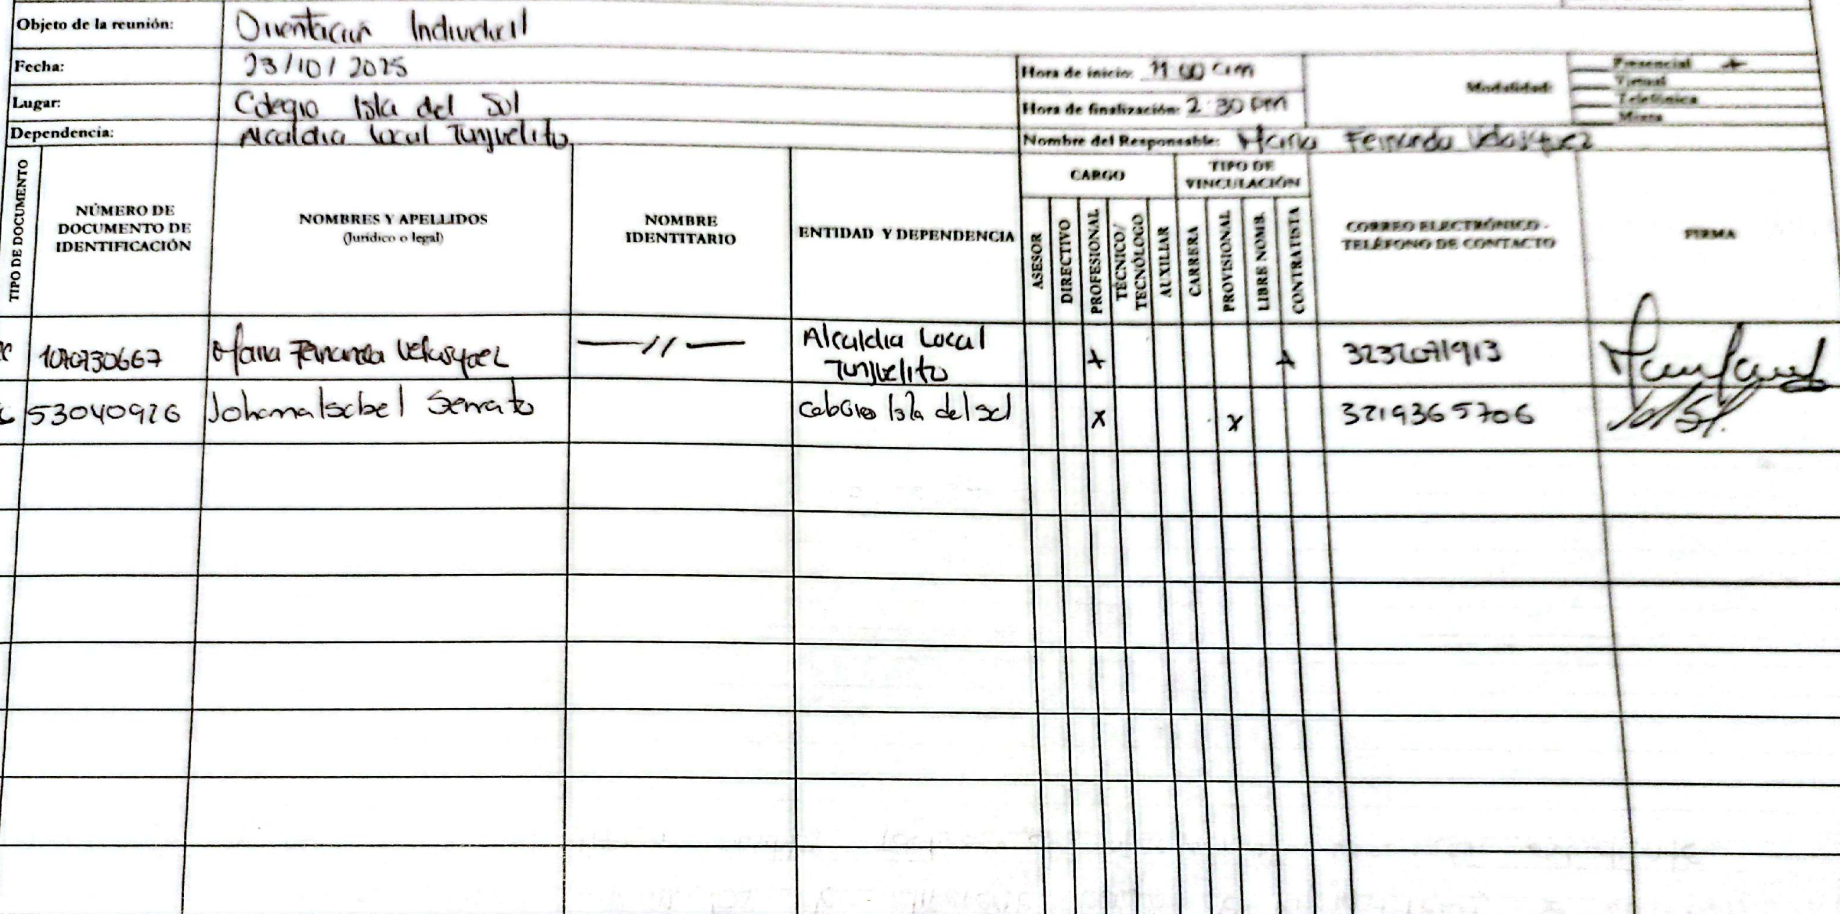 Objeto de la reunión: Orientación Individual
Fecha: 23/10/2025
Hora de inicio: 11:00 am
Modalidad:
Presencial
Virtual
Telefónica
Mixta
Lugar: Colegio Isla del Sol
Hora de finalización: 2:30 pm
Dependencia: Alcaldia Local Tunjuelito
Nombre del Responsable: Maria Fernanda Velasquez
TIPO DE DOCUMENTO
NÚMERO DE
DOCUMENTO DE
IDENTIFICACIÓN
NOMBRES Y APELLIDOS
(Jurídico o legal)
NOMBRE
IDENTITARIO
ENTIDAD Y DEPENDENCIA
CARGO
ASESOR
DIRECTIVO
PROFESIONAL
TÉCNICO/
TECNÓLOGO
AUXILIAR
TIPO DE
VINCULACIÓN
CARRERA
PROVISIONAL
LIBRE NOMB.
CONTRATISTA
CORREO ELECTRÓNICO -
TELÉFONO DE CONTACTO
FIRMA
Maria Fernanda Velasquez —//— Alcaldia Local
Tunjuelito x x
53040926 Johanna Isabel Serrato Colegio Isla del Sol x x 3219365706